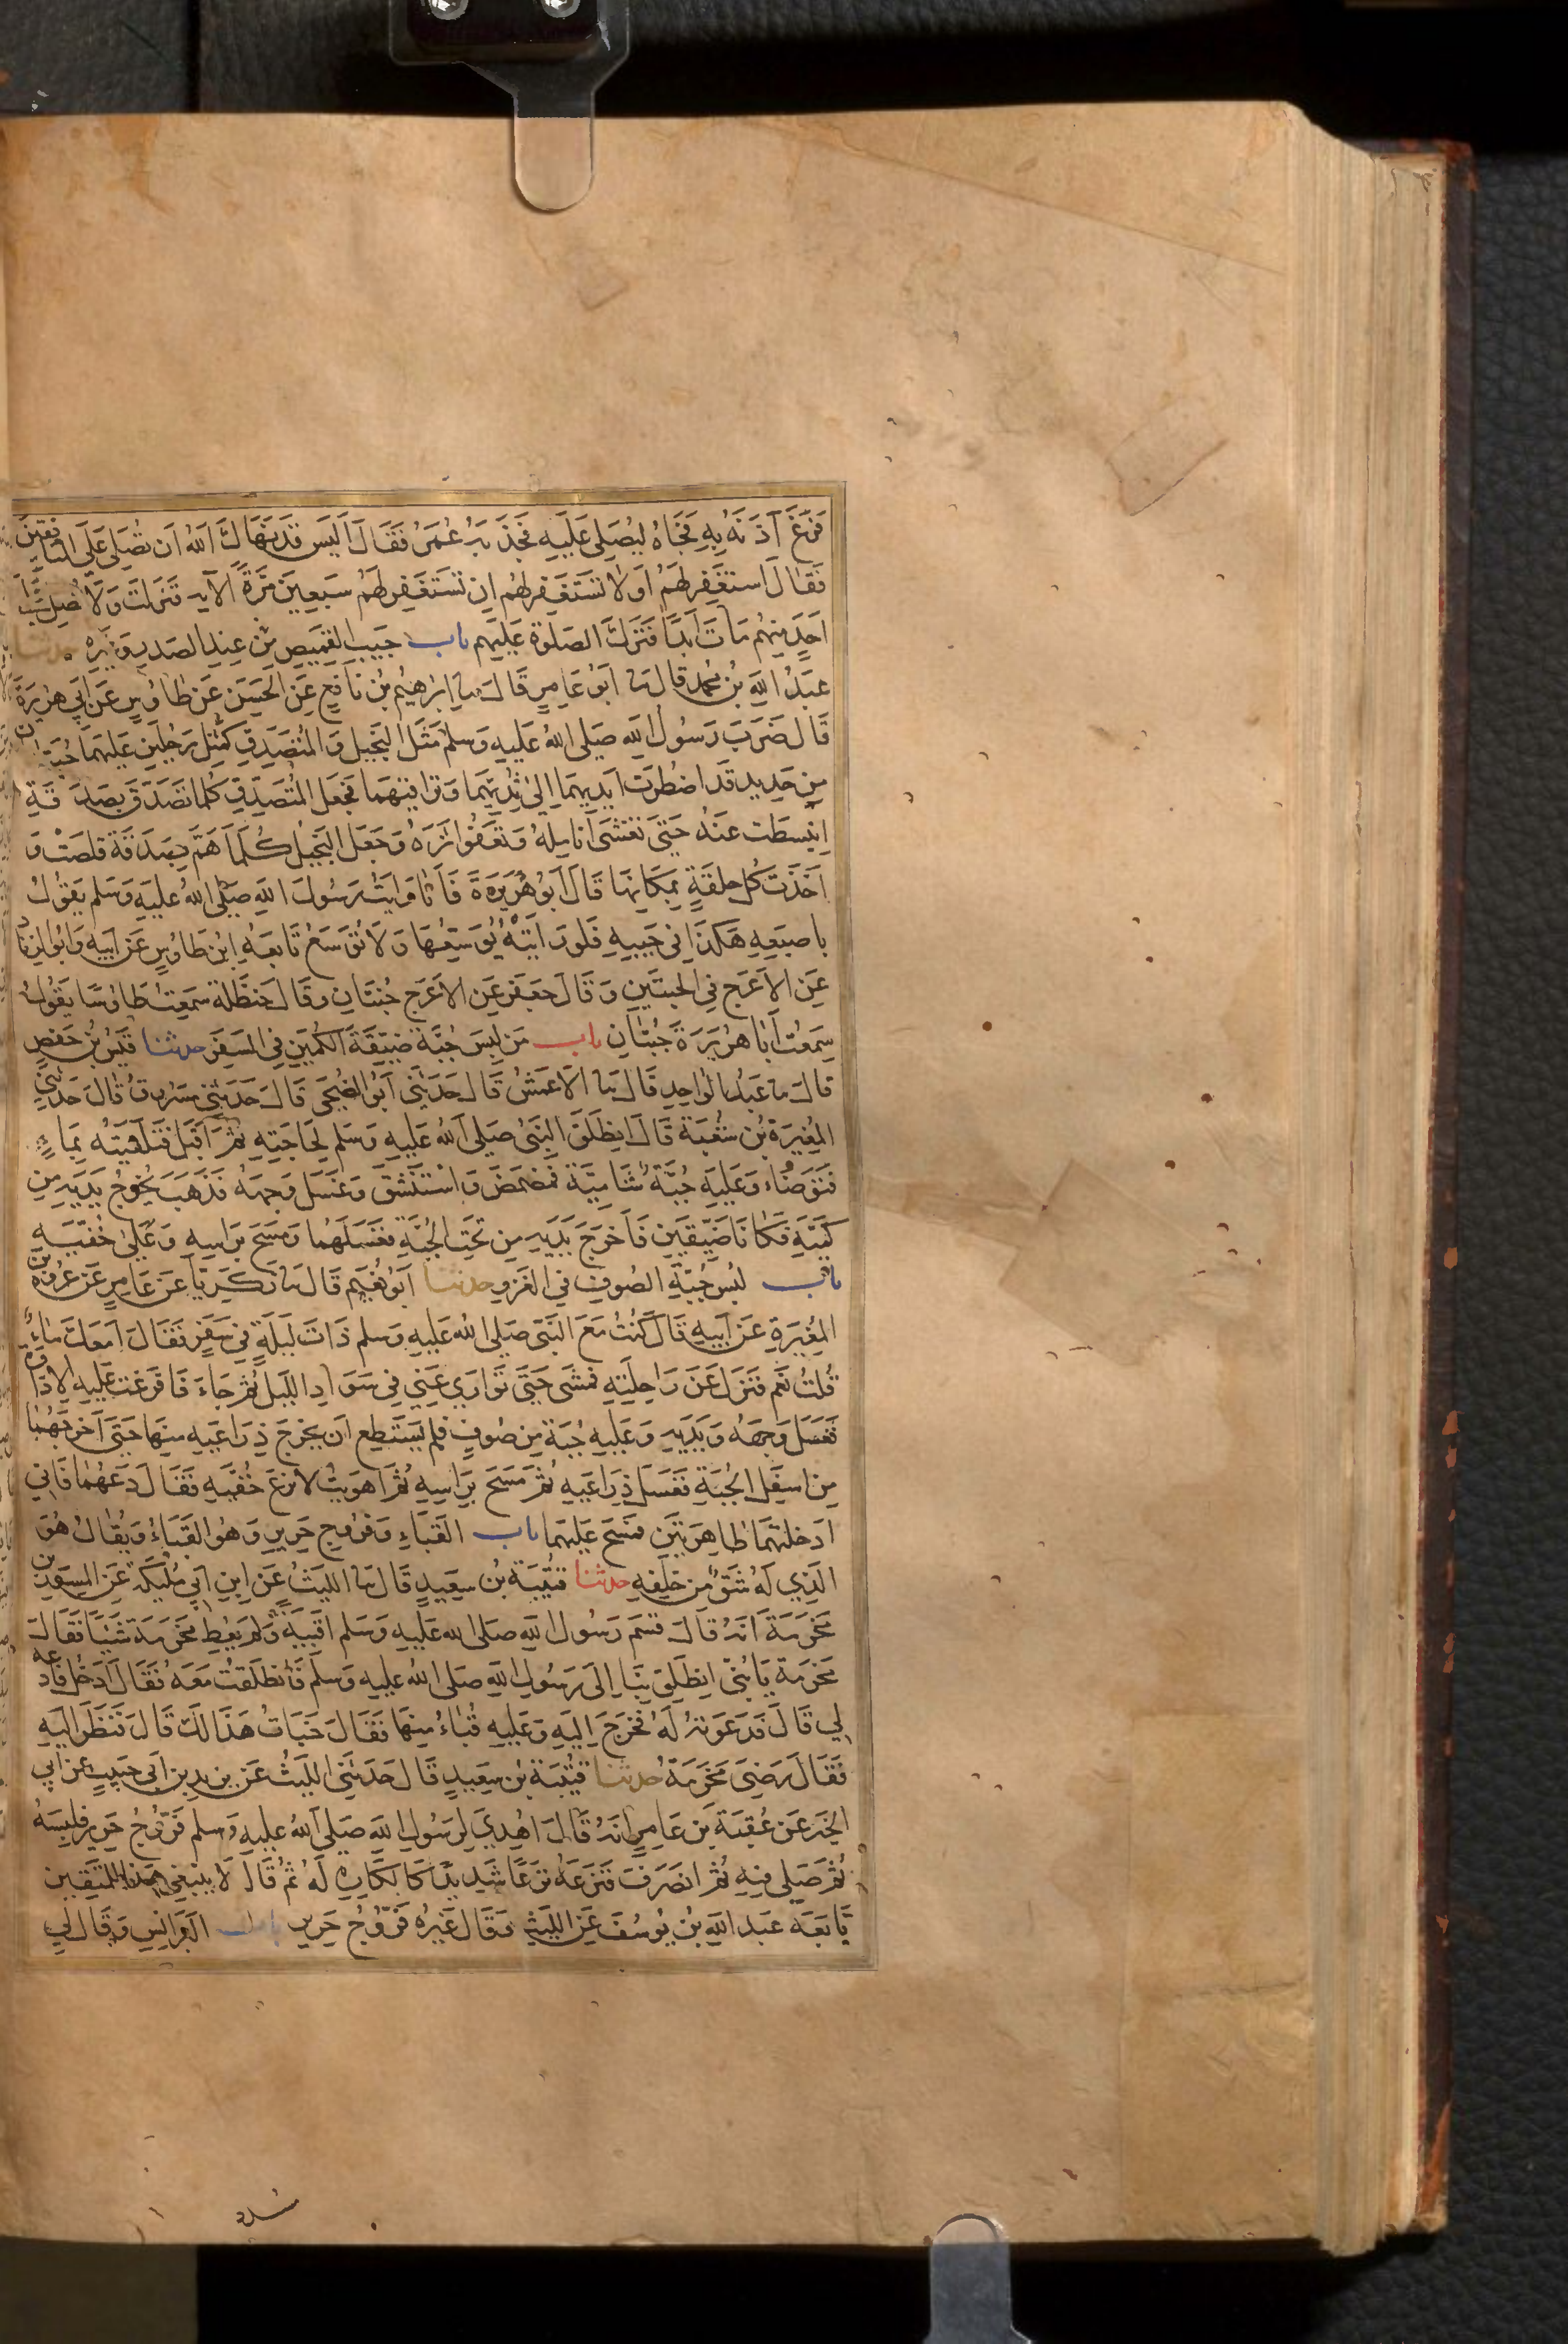 فَرَغَ آذَنَهُ بِهِ فَجَاءَ لِيُصَلِّيَ عَلَيهِ فَجَذَبَهُ عُمَرُ فَقَالَ أَلَيسَ قَد نَهَاكَ اللهُ اَن تُصَلِّيَ عَلَى المنَافِقِينَ
فَقَالَ استَغفِر لَهُم اَو لَا تَستَغفِر لَهُم اِن تَستَغفِر لَهُم سَبعِينَ مَرَّةً الآية فَنَزَلَت وَلَا تُصَلِّ عَلَى
اَحَدٍ مِنهُم مَاتَ اَبَدًا فَتَرَكَ الصَلوةَ عَلَيهِم باب جَيبِ القَمِيصِ مِن عِندِ الصَدرِ وَغَيرِهِ حدثنا
عَبدُ اللهِ بنُ مُحَمد قال ثنا اَبُو عَامِرٍ قَالَ ثنا اِبرَهِيمُ بنُ نَافِعٍ عَنِ الحَسَنِ عَن طَاوُسٍ عَن اَبِي هُرَيرَةَ
قَالَ ضَرَبَ رَسُولُ اللهِ صَلى اللهُ عَلَيهِ وَسَلم مَثَلَ البَخِيلِ وَالمُتَصَدِقِ كَمَثَلِ رَجُلَينِ عَلَيهِمَا جُبَتَانِ
مِن حَدِيد قَد اضطُرَت اَيدِيهِمَا اِلى ثُدِيِّهِمَا وَتَرَاقِيهِمَا فَجَعَلَ المُتَصَدِقُ كُلَّمَا تَصَدَقَ بِصَدَقَةٍ
اِنبَسَطَت عَنهُ حَتى تَغشَى اَنَامِلَهُ وَتَعفُوَ اَثَرَهُ وَجَعَلَ البَخِيلُ كُلَّمَا هَمَّ بِصَدَقَة قَلَصَت وَ
اَخَذَت كُلُّ حَلقَةٍ بِمَكَانِهَا قَالَ اَبُو هُرَيرَةَ فَاَنَا رَاَيتُ رَسُولَ اللهِ صَلى اللهُ عَلَيهِ وَسَلم يَقُولُ
بِاصبَعِهِ هَكَذَا فِي جَيبِهِ فَلَو رَاَيتَهُ يُوَسِّعُهَا وَلَا تُوَسَّعُ تَابَعَهُ اِبنُ طَاوُسٍ عَن اَبِيهِ وَاَبُو الزِنَادِ
عَنِ الاَعرَجِ فِي الجُبَتَينِ وَقَالَ جَعفَر عَنِ الاَعرَجِ جُنَتَانِ وَقَالَ حَنظَلَة سَمِعتُ طَاوُسًا يَقُولُ
سَمِعتُ اَبَا هُرَيرَةَ جُبَتَانِ باب مَن لَبِسَ جُبَّةً ضَيِّقَةَ الكُمَينِ فِي السَفَرِ حدثنا قَيسُ بنُ حَفصٍ
قَالَ ثنا عَبدُ الوَاحِدِ قَالَ ثنا الاَعمَشُ قَالَ حَدَثَنِي اَبُو الضُحَى قَالَ حَدَثَنِي مَسرُوقُ قَالَ حَدَثَنِي
المُغِيرَةُ بنُ شُعبَةَ قَالَ انطَلَقَ النَبِيُّ صَلى اللهُ عَلَيهِ وَسَلم لِحَاجَتِهِ ثُمَّ اَقبَلَ فَتَلَقَيتُهُ بِمَاءٍ
فَتَوَضَّاءَ وَعَلَيهِ جُبَّة شَامِيَّة فَمَضمَضَ وَاستَنشَقَ وَغَسَلَ وَجهَهُ فَذَهَبَ يُخرِجُ يَدَيهِ مِن
كُمَّيهِ فَكَانَا ضَيِّقَينِ فَاَخرَجَ يَدَيهِ مِن تَحتِ الجُبَّةِ فَغَسَلَهُمَا وَمَسَحَ بِرَاسِهِ وَعَلى خُفَّيهِ
باب لُبسِ جُبَّةِ الصُوفِ فِي الغَزوِ حدثنا اَبُو نُعَيم قَالَ ثنا زَكَرِيَّا عَن عَامِرٍ عَن عُروَةَ بن
المُغِيرَةِ عَن اَبِيهِ قَالَ كُنتُ مَعَ النَبِيِ صَلى اللهُ عَلَيهِ وَسَلم ذَاتَ لَيلَةٍ فِي سَفَرٍ فَقَالَ اَمَعَكَ مَاءٌ
قُلتُ نَعَم فَنَزَلَ عَن رَاحِلَتِهِ فَمَشَى حَتى تَوَارَي عَنِي فِي سَوَادِ اللَيلِ ثُمَّ جَاءَ فَاَفرَغتُ عَلَيهِ الاِدَاوَةَ
فَغَسَلَ وَجهَهُ وَيَدَيهِ وَعَلَيهِ جُبَة مِن صُوفٍ فَلَم يَستَطِع اَن يُخرِجَ ذِرَاعَيهِ مِنهَا حَتى اَخرَجَهُمَا
مِن اَسفَلِ الجُبَةِ فَغَسَلَ ذِرَاعَيهِ ثُمَّ مَسَحَ بِرَاسِهِ ثُمَّ اَهوَيتُ لاَنزِعَ خُفَّيهِ فَقَالَ دَعهُمَا فَاِنِي
اَدخَلتُهُمَا طَاهِرَتَينِ فَمَسَحَ عَلَيهِمَا باب القَبَاءِ وَفَرُوجِ حَرِيرٍ وَهُوَ القَبَاءُ وَيُقَالُ هُوَ
الَذِي لَهُ شَقٌّ مِن خَلفِهِ حدثنا قُتَيبَةُ بنُ سَعِيدٍ قَالَ ثنا اللَيثُ عَنِ ابنِ اَبِي مُلَيكَةَ عَنِ المِسوَرِ بن
مَخرَمَةَ اَنَّهُ قَالَ قَسَمَ رَسُولُ اللهِ صَلى اللهُ عَلَيهِ وَسَلم اَقبِيَةً وَلَم يُعطِ مَخرَمَةَ شَيئًا فَقَالَ
مَخرَمَة يَا بُنَيَّ انطَلِق بِنَا اِلَى رَسُولِ اللهِ صَلى اللهُ عَلَيهِ وَسَلم فَانطَلَقتُ مَعَهُ فَقَالَ ادخُل فَادعُه
لِي قَالَ فَدَعَوتُهُ لَهُ فَخَرَجَ اِلَيهِ وَعَلَيهِ قَبَاءٌ مِنهَا فَقَالَ خَبَأتُ هَذَا لَكَ قَالَ فَنَظَرَ اِلَيهِ
فَقَالَ رَضِيَ مَخرَمَةُ حدثنا قُتَيبَةُ بنُ سَعِيدٍ قَالَ حَدَثَنِي اللَيثُ عَن يَزِيدَ بنِ اَبِي حَبِيبٍ عَن اَبِي
الخَيرِ عَن عُقبَةَ بنِ عَامِرٍ اَنَّهُ قَالَ اُهدِيَ لِرَسُولِ اللهِ صَلى اللهُ عَلَيهِ وَسَلم فَرُّوجُ حَرِيرٍ فَلَبِسَهُ
ثُمَّ صَلى فِيهِ ثُمَّ انصَرَفَ فَنَزَعَهُ نَزعًا شَدِيدًا كَالكَارِهِ لَهُ ثُمَّ قَالَ لَا يَنبَغِي هَذَا لِلمُتَّقِينَ
تَابَعَهُ عَبدُ اللهِ بنُ يُوسُفَ عَنِ اللَيثِ وَقَالَ غَيرُهُ فَرُّوجُ حَرِيرٍ باب البَرَانِسِ وَقَالَ لِي